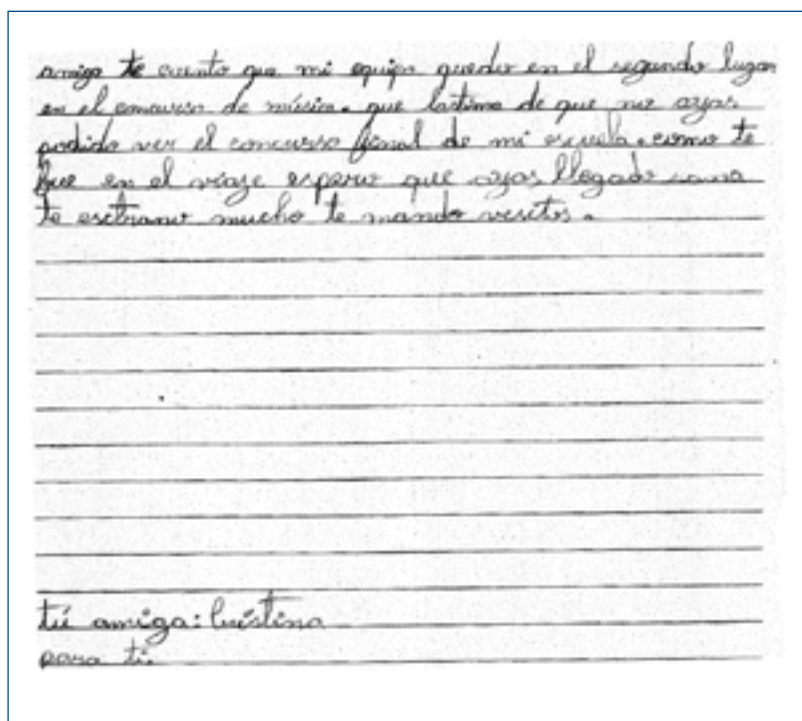 amigo te cuento que mi equipo quedo en el segundo lugar
en el concurso de música. que lastima de que no ayas
podido ver el concurso final de mi escuela. como te
fue en el viaje espero que ayas llegado sana
te esctrano mucho te mando vesitos.
tú amiga:
para tí